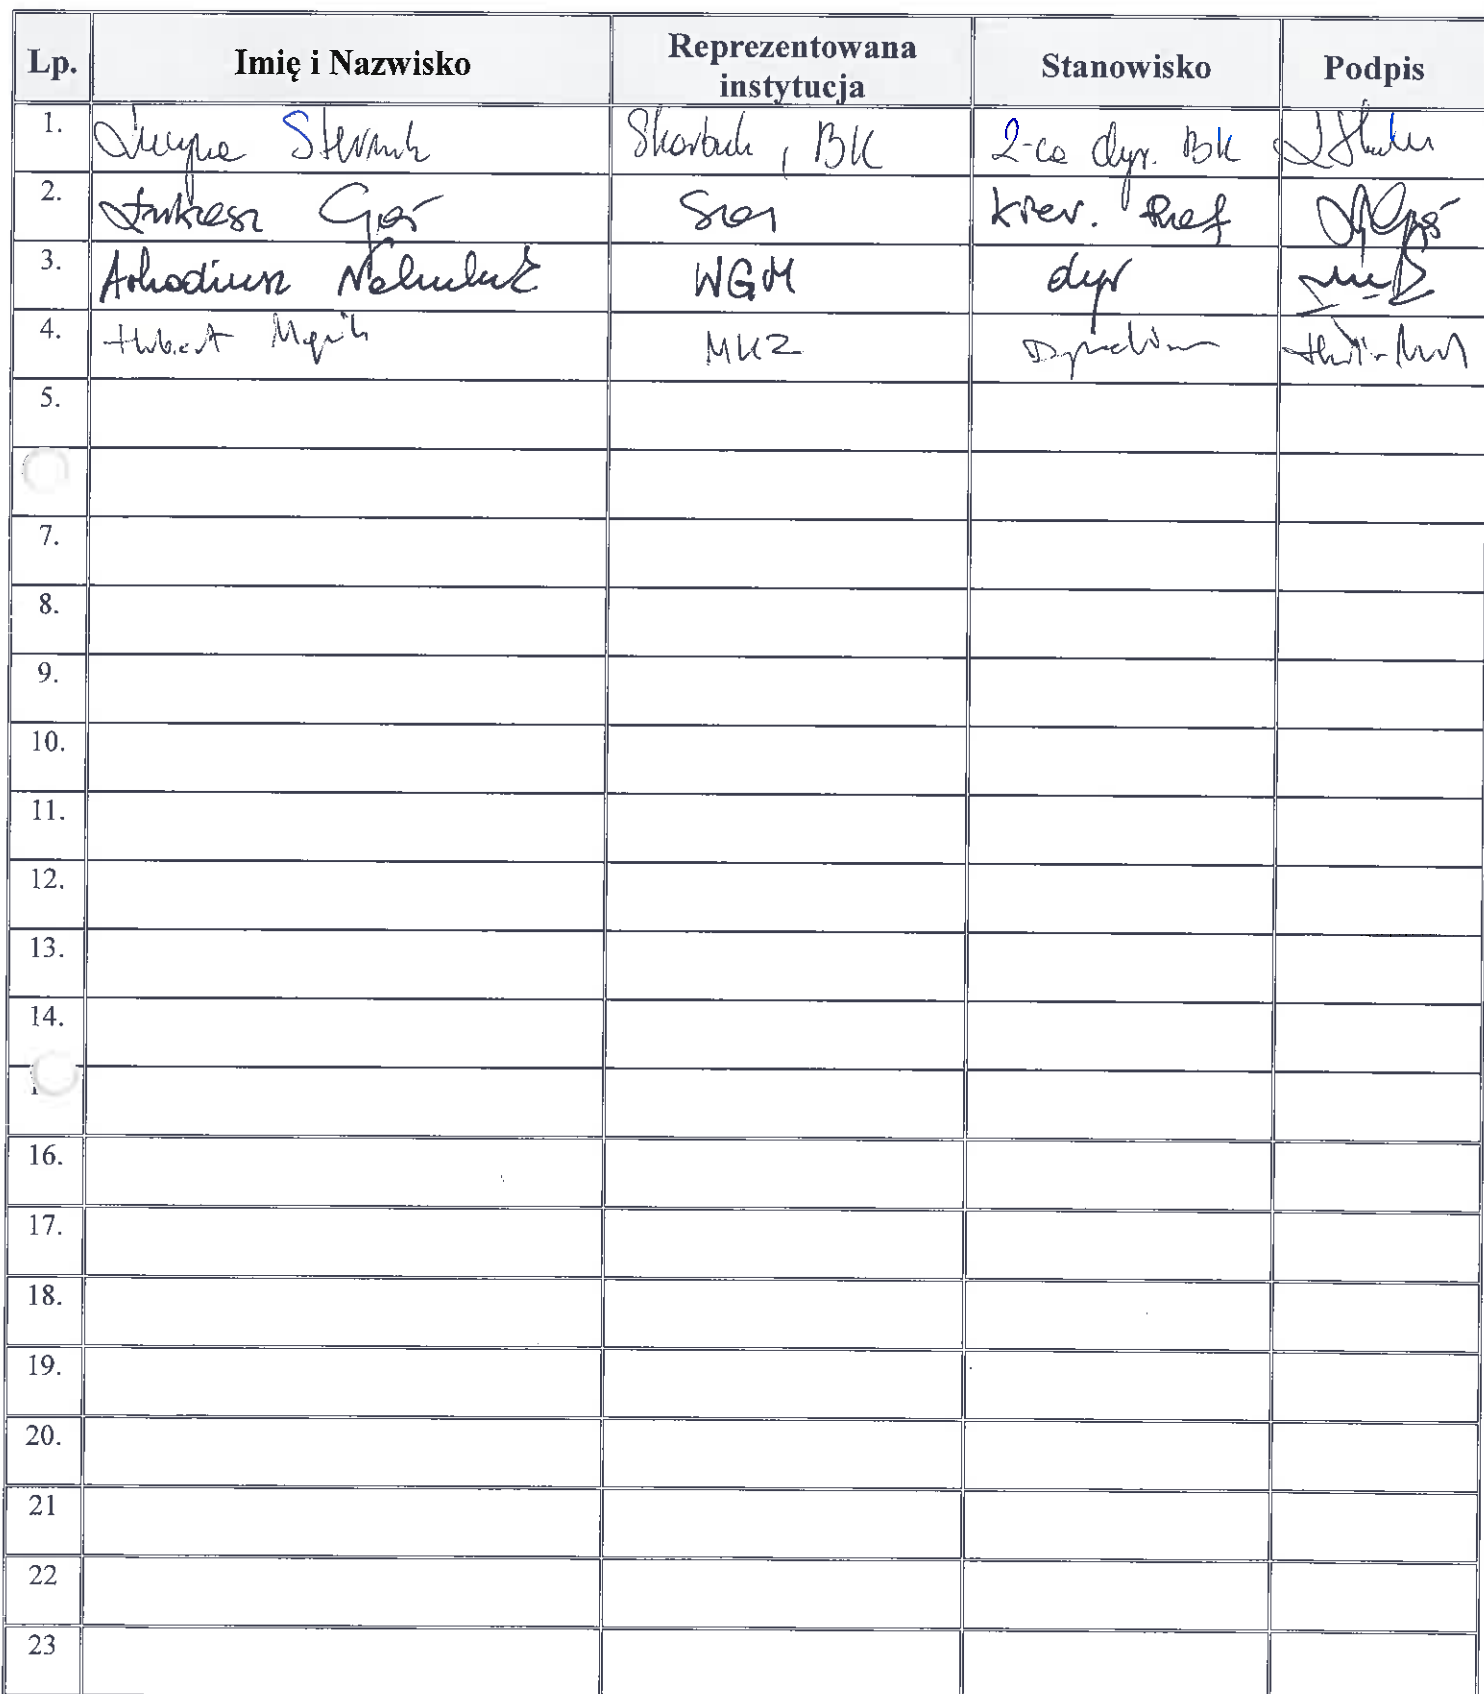 Lp. Imię i Nazwisko Reprezentowana instytucja Stanowisko Podpis
1. Lucyna Sternik Skarbnik, BK Z-ca dyr. BK
2. Łukasz Goś kier. Ref
3. Arkadiusz WGM dyr
4. Hubert MKZ Dyrektor
5.
7.
8.
9.
10.
11.
12.
13.
14.
16.
17.
18.
19.
20.
21
22
23